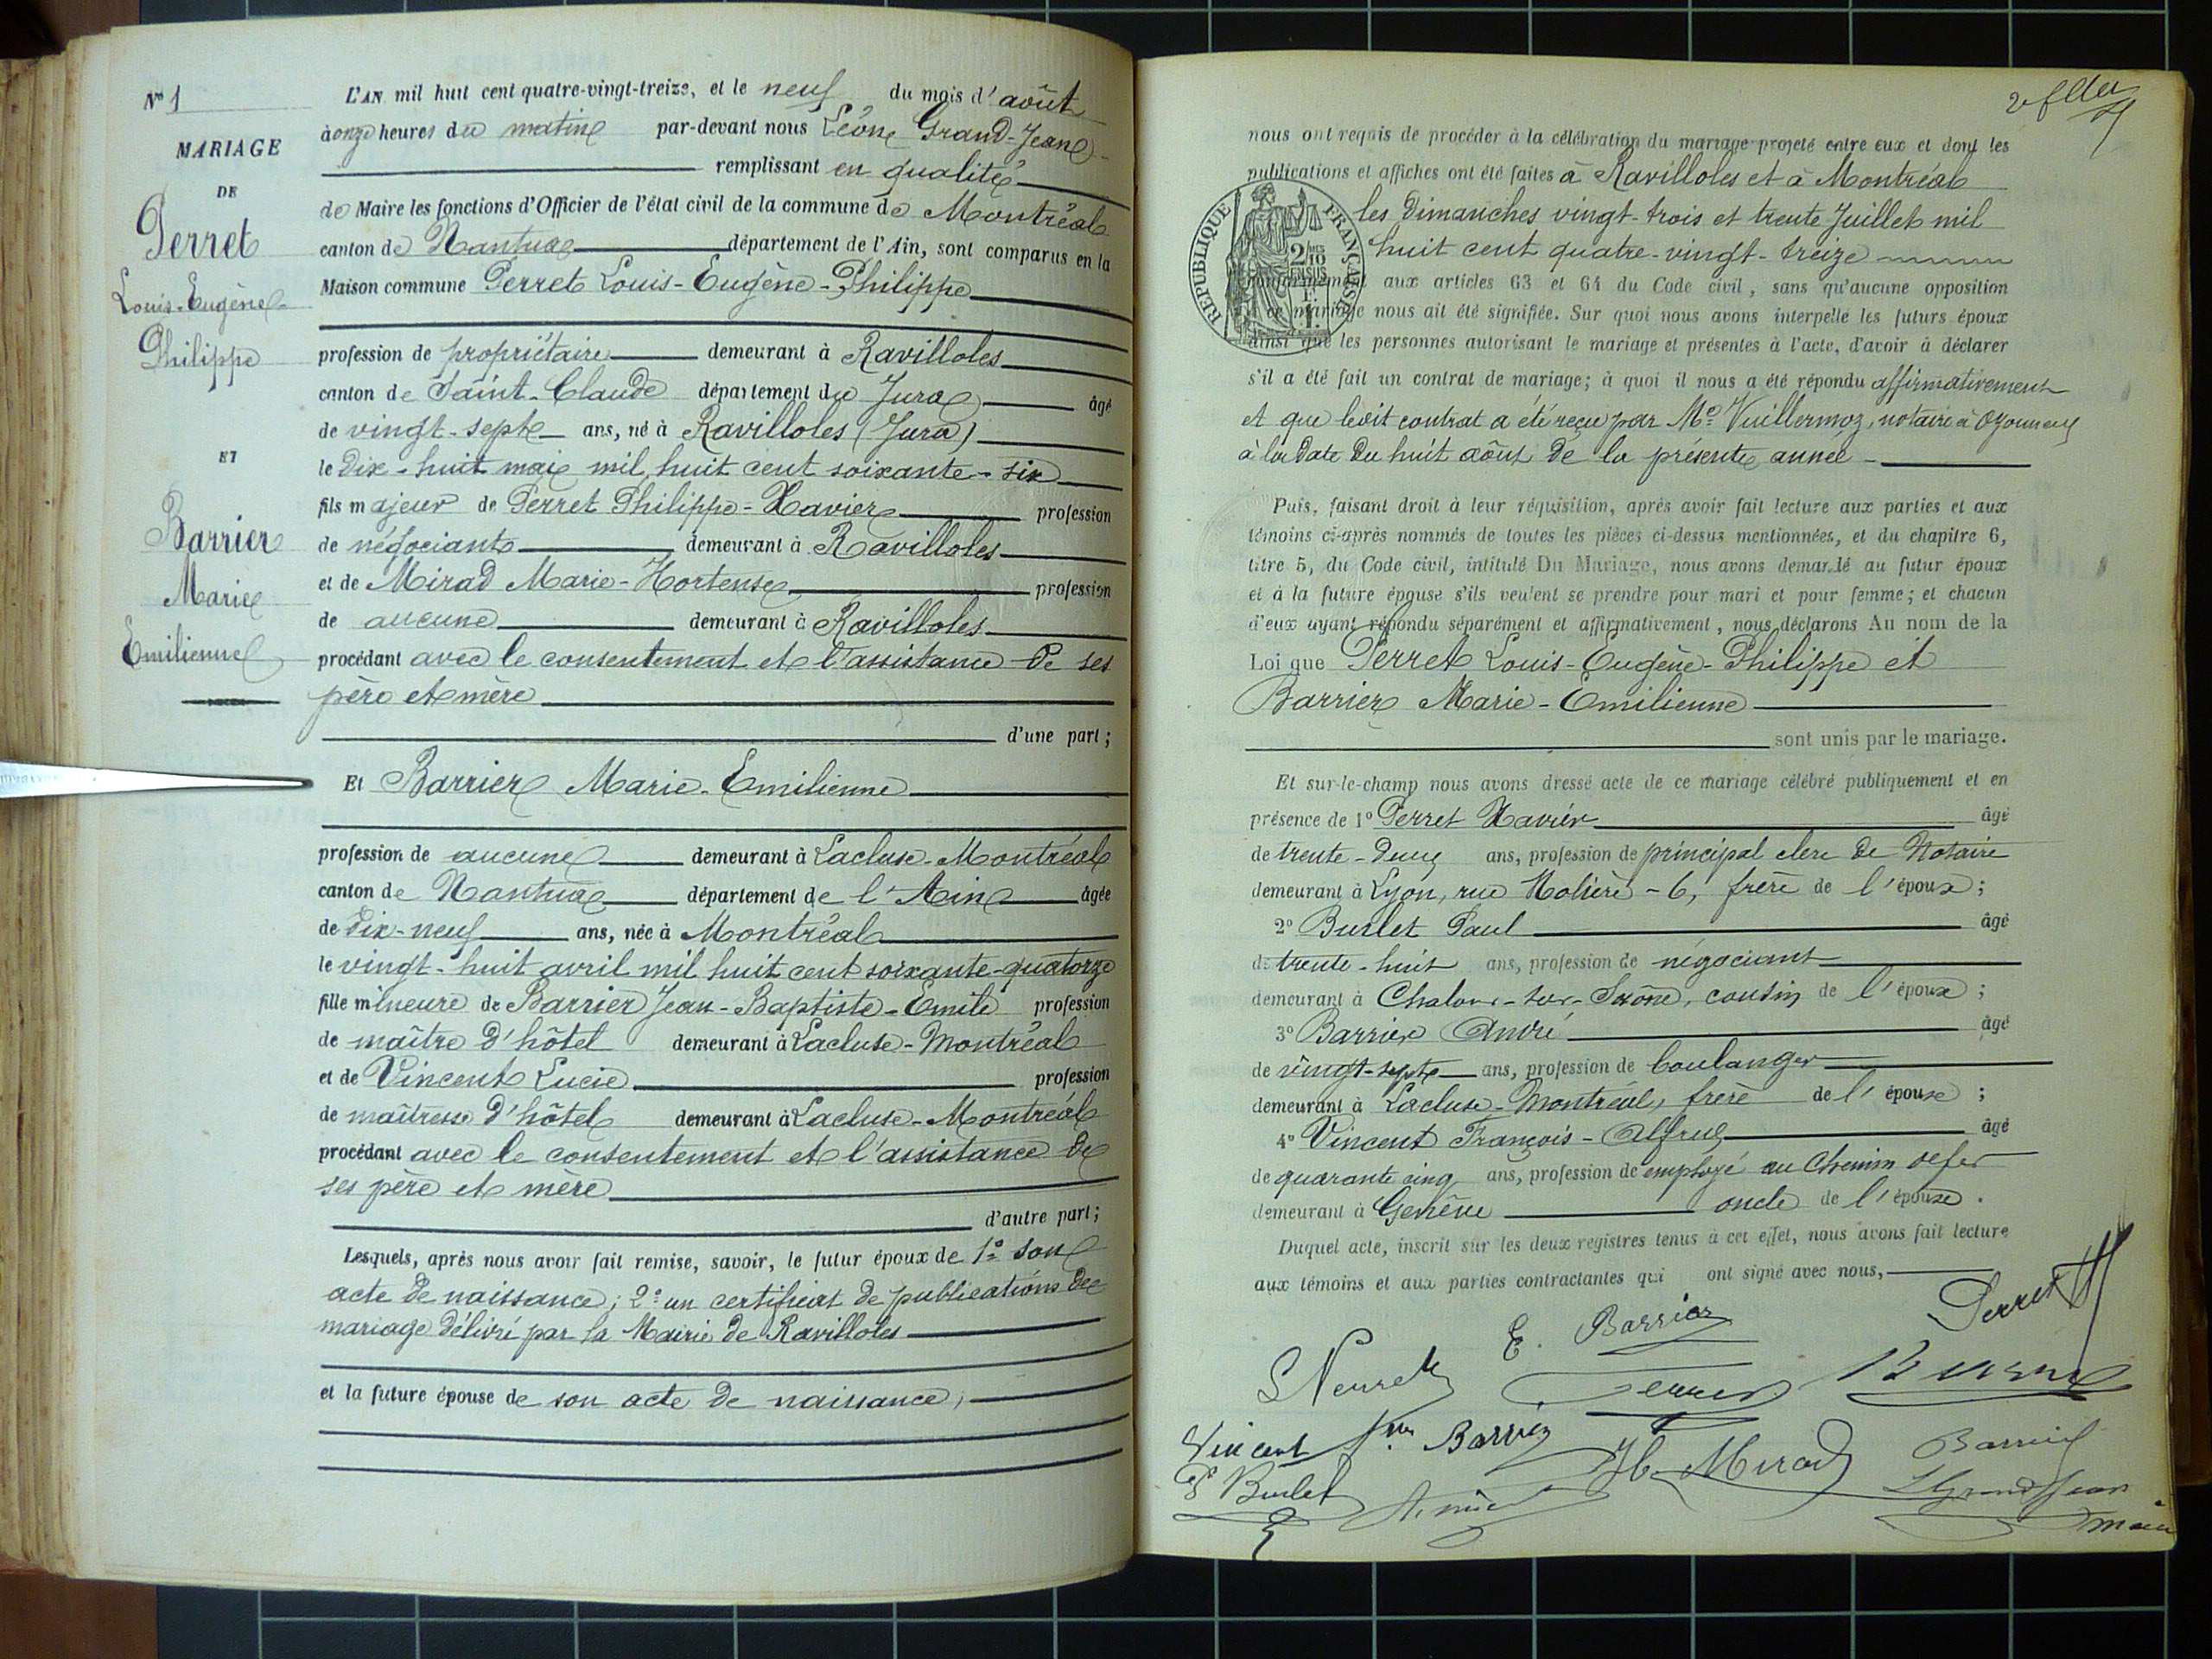 No 1
MARIAGE
DE
Perret
Louis-Eugène-
Philippe
ET
Barrier
Marie
Emilienne
L'AN mil huit cent quatre-vingt-treize, et le neuf du mois d'août
à onze heures du matin par-devant nous Léon Grand-Jean
remplissant en qualité
de Maire les fonctions d'Officier de l'état civil de la commune de Montréal
canton de Nantua département de l'Ain, sont comparus en la
Maison commune Perret Louis-Eugène-Philippe
profession de propriétaire demeurant à Ravilloles
canton de Saint-Claude département du Jura âgé
de vingt-sept ans, né à Ravilloles (Jura)
le dix-huit mai mil huit cent soixante-six
fils majeur de Perret Philippe-Xavier profession
de négociant demeurant à Ravilloles
et de Mirad Marie-Hortense profession
de aucune demeurant à Ravilloles
procédant avec le consentement et l'assistance de ses
père et mère
d'une part;
Et Barrier Marie-Emilienne
profession de aucune demeurant à Lacluse-Montréal
canton de Nantua département de l'Ain âgée
de dix-neuf ans, née à Montréal
le vingt-huit avril mil huit cent soixante-quatorze
fille mineure de Barrier Jean-Baptiste-Emile profession
de maître d'hôtel demeurant à Lacluse-Montréal
et de Vincent Lucie profession
de maîtresse d'hôtel demeurant à Lacluse-Montréal
procédant avec le consentement et l'assistance de
ses père et mère
d'autre part;
Lesquels, après nous avoir fait remise, savoir, le futur époux de 1º son
acte de naissance; 2º un certificat de publications de
mariage délivré par la Mairie de Ravilloles
et la future épouse de son acte de naissance,
nous ont requis de procéder à la célébration du mariage projeté entre eux et dont les
publications et affiches ont été faites à Ravilloles et à Montréal
les Dimanches vingt-trois et trente Juillet mil
huit cent quatre-vingt-treize
RÉPUBLIQUE FRANÇAISE
conformément aux articles 63 et 64 du Code civil, sans qu'aucune opposition
à ce mariage nous ait été signifiée. Sur quoi nous avons interpellé les futurs époux
ainsi que les personnes autorisant le mariage et présentes à l'acte, d'avoir à déclarer
s'il a été fait un contrat de mariage; à quoi il nous a été répondu affirmativement
et que ledit contrat a été reçu par Me Vuillermoz, notaire à
à la date du huit août de la présente année
Puis, faisant droit à leur réquisition, après avoir fait lecture aux parties et aux
témoins ci-après nommés de toutes les pièces ci-dessus mentionnées, et du chapitre 6,
titre 5, du Code civil, intitulé Du Mariage, nous avons demandé au futur époux
et à la future épouse s'ils veulent se prendre pour mari et pour femme; et chacun
d'eux ayant répondu séparément et affirmativement, nous déclarons Au nom de la
Loi que Perret Louis-Eugène-Philippe et
Barrier Marie-Emilienne
sont unis par le mariage.
Et sur-le-champ nous avons dressé acte de ce mariage célébré publiquement et en
présence de 1º Perret Xavier âgé
de trente-deux ans, profession de principal clerc de Notaire
demeurant à Lyon, rue Molière-6, frère de l'époux;
2º Burlet Paul âgé
de trente-huit ans, profession de négociant
demeurant à Chalon-sur-Saône, cousin de l'époux;
3º Barrier André âgé
de vingt-sept ans, profession de boulanger
demeurant à Lacluse-Montréal, frère de l'épouse;
4º Vincent François-Alfred âgé
de quarante cinq ans, profession de employé au Chemin de fer
demeurant à Genève oncle de l'épouse.
Duquel acte, inscrit sur les deux registres tenus à cet effet, nous avons fait lecture
aux témoins et aux parties contractantes qui ont signé avec nous,
E. Barrier Perret
Perret
Vincent Barrier H. Mirad Barrier
P Burlet LGrandJean
maire